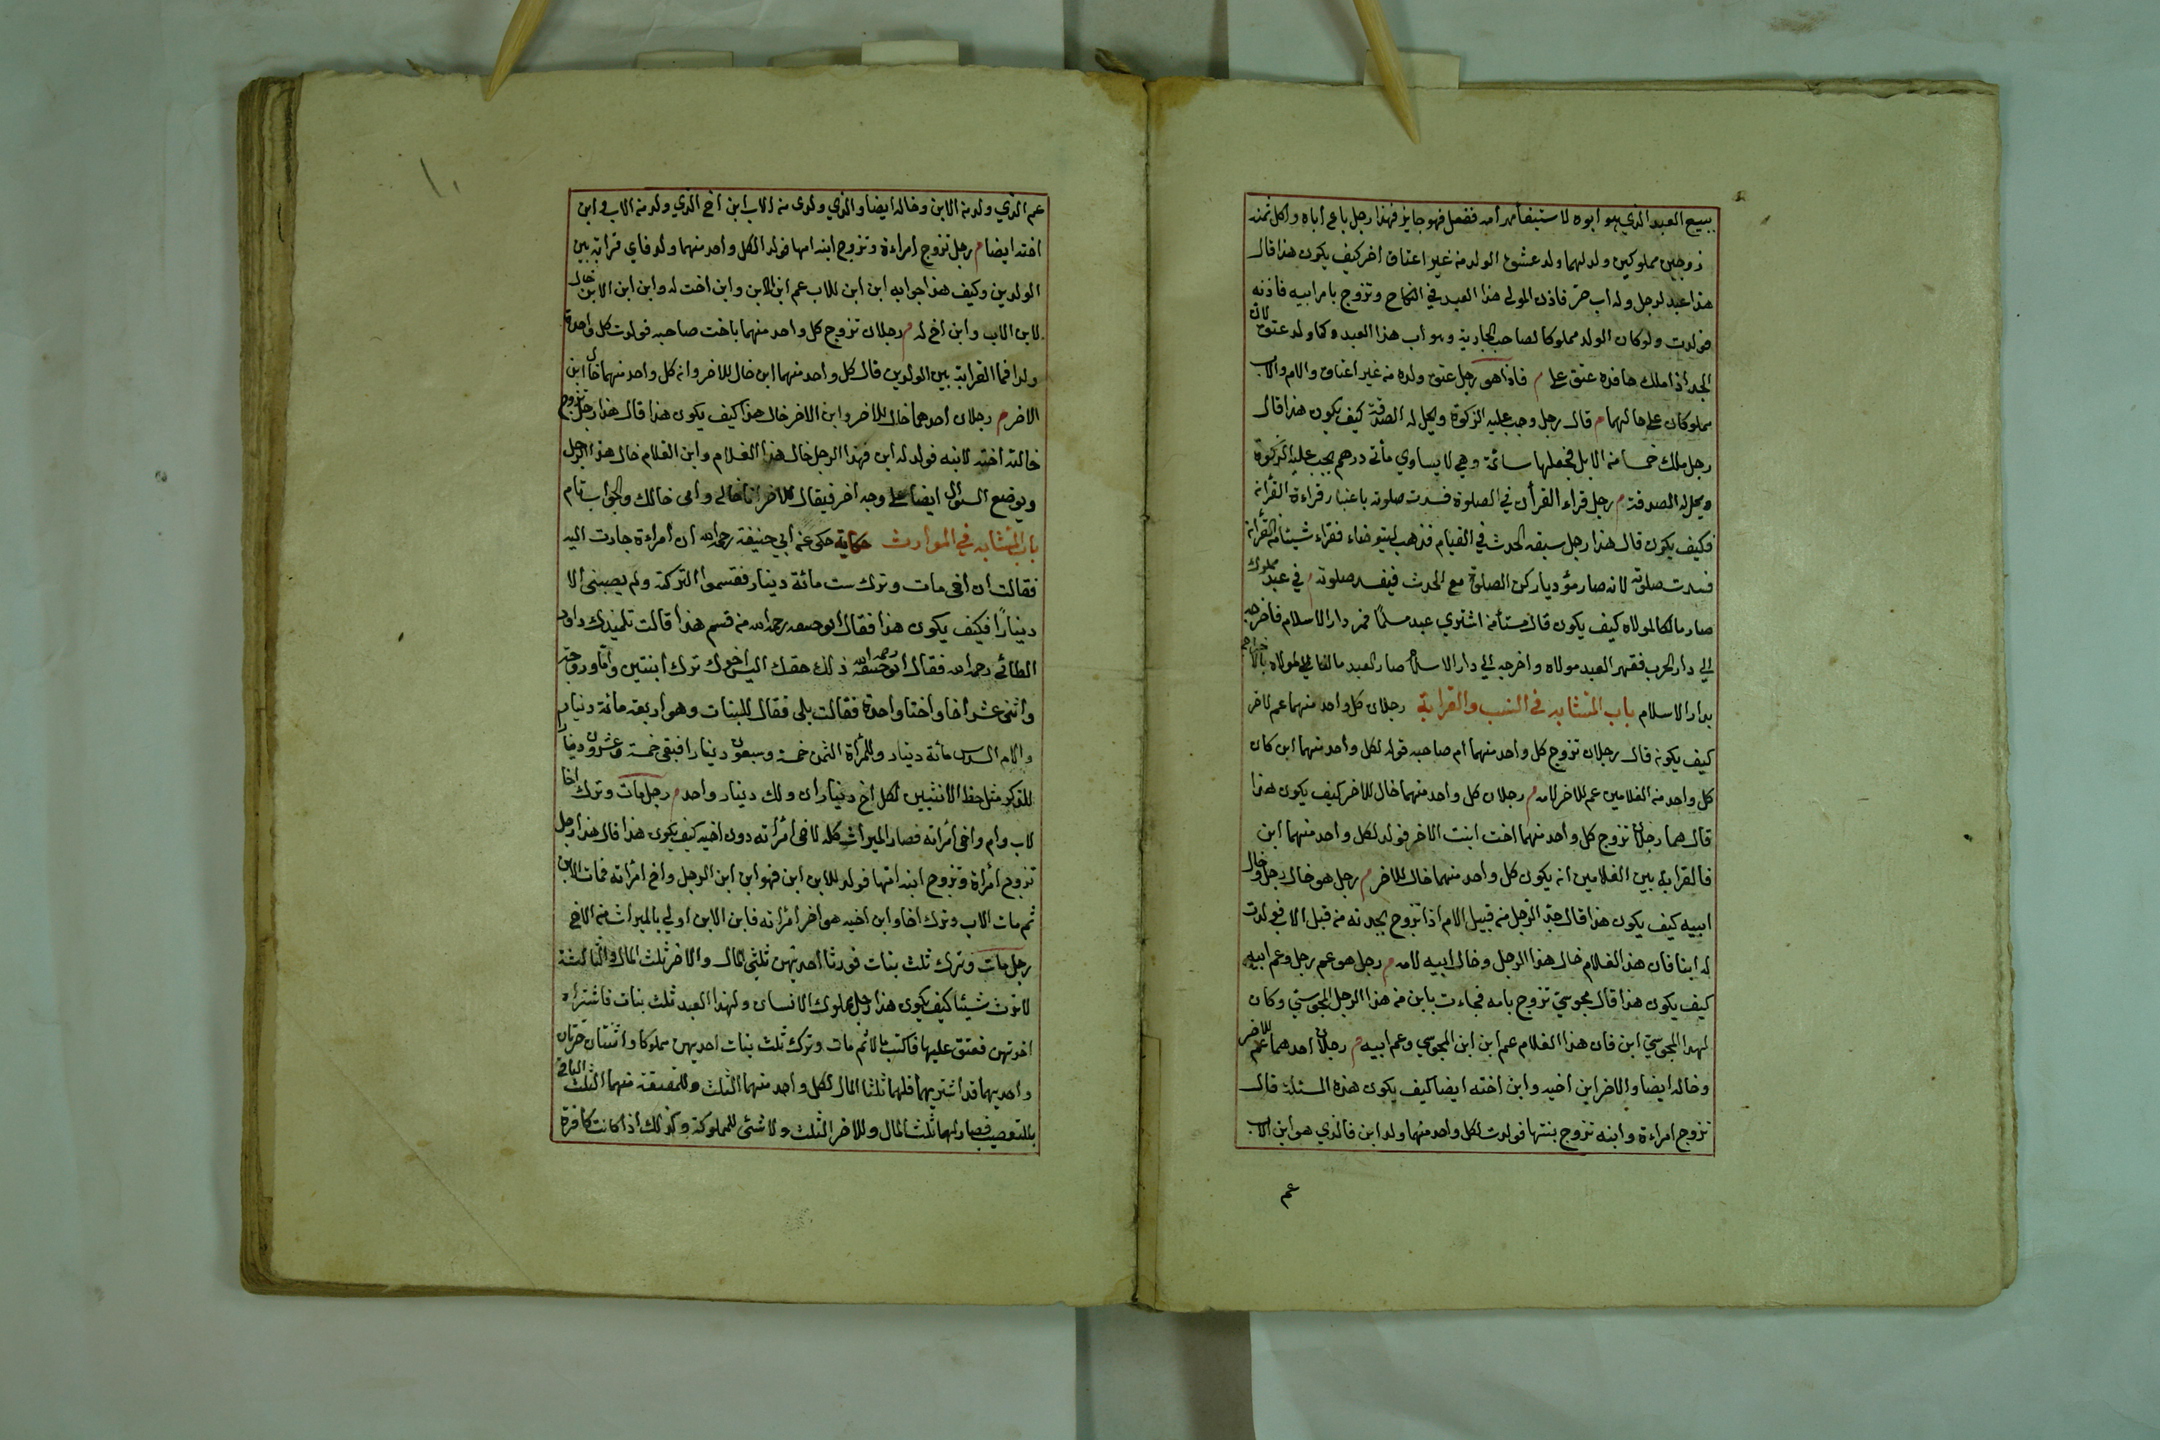 ببيع العبد الذي هو ابوه لاستيفاء مهر امه ففعل فهو جايز فهذا رجل باع اباه واكل ثمنه
زوجين مملوكين ولد لهما ولد عتق الولد من غير اعتاق اخر كيف يكون هذا قال
هذا عبد لرجل وله اب حر فاذن المولى هذا العبد في النكاح وتزوج بامر ابيه فاذنه
فولدت ولد كان الولد مملوكا لصاحب الجارية وهو اب هذا العبد وكما ولد عتق لان
الجد اذا ملك حافده عتق عليه م فاذا هو رجل عتق ولده من غير اعتاق والام والاب
مملوكان على حالهما م قال رجل وجب عليه الزكوة ويحل له الصدقة كيف يكون هذا قال
رجل ملك خمسا من الابل فجعلها سائمة وهي لا يساوي مأتي درهم يجب عليه الزكوة
ويحل له الصدقة م رجل قراء القرأن في الصلوة فسدت صلوته باعتبار قراءة القرأن
فكيف يكون قال هذا رجل سبقه الحدث في القيام فذهب ليتوضاء فقراء شيئا من القرأن
فسدت صلوته لانه صار مؤديا ركن الصلوة مع الحدث فيفسد صلوته م في عبد مملوك
صار مالكا لمولاه كيف يكون قال مستأمن اشترى عبد مسلما في دار الاسلام فاخرجه
الي دار الحرب فقهر العبد مولاه واخرجه الي دار الاسلام صار العبد مالكا لمولاه بالاخراجه
بدار الاسلام باب المتشابه في النسب والقرابة رجلان كل واحد منهما عم لاخر
كيف يكون قال رجلان تزوج كل واحد منهما ام صاحبه فولد لكل واحد منهما ابن كان
كل واحد من الغلامين عم للاخر لامه م رجلان كل واحد منهما خال للاخر كيف يكون هذا
قال هما رجلان تزوج كل واحد منهما اخت ابنت الاخر فولد لكل واحد منهما ابن
فالقرابة بين الغلامين انه يكون كل واحد منهما خال للاخر م رجل هو خال رجل وخال
ابيه كيف يكون هذا قال جد الرجل من قبيل الام اذا تزوج بجدته من قبل الاب فولدت
له ابنا فان هذا الغلام خال هذا الرجل وخال ابيه لامه م رجل هو عم رجل وعم ابيه
كيف يكون هذا قال مجوسي تزوج بامه فجاءت بابن من هذا الرجل المجوسي وكان
لهذا المجوسي ابن فان هذا الغلام عم ابن ابن المجوسي وعم ابيه م رجلان احدهما عم للاخر
وخاله ايضا والاخر ابن اخيه وابن اخته ايضا كيف يكون هذه المسئلة قال
تزوج امراءة وابنه تزوج بنتها فولدت لكل واحد منهما ولد ابن فالذي هو ابن الاب
عم
عم الذي ولد من الابن وخاله ايضا والذي ولدى من الاب ابن اخ الذي ولد من الاب وابن
اخته ايضا م رجل تزوج امراءة وتزوج ابنه امها فولد الكل واحد منهما ولد فاي قرابة بين
الولدين وكيف هذا جوابه ابن ابن للاب عم ابن الابن وابن اخت له وابن ابن الابن خال
لابن الاب وابن اخ له م رجلان تزوج كل واحد منهما باخت صاحبه فولدت كل واحدة
ولدا فما القرابة بين الولدين قال كل واحد منهما ابن خال للاخر وانه كل واحد منهما خال ابن
الاخر م رجلان احدهما خال للاخر وابن الاخر خال هذا كيف يكون هذا قال هذا رجل تزوج
خالته اخته لابنه فولد له ابن فهذا الرجل خال هذا الغلام وابن الغلام خال هذا الرجل
ويوضع السؤال ايضا على وجه اخر فيقال للاخر انا خالي وامى خالك والجواب تام
باب المتشابه في الموارث حكاية حكى عن أبي حنيفة رحمه الله ان أمراءة جاءت اليه
فقالت ان اخى مات وترك ست مائة دينار فقسموا التركة ولم يصبنى الا
دينارا فكيف يكون هذا فقال ابو حنيفة رحمه الله من قسم هذا قالت تلميذك داود
الطائي رحمه الله فقال ابو حنيفة رحمه الله ذلك حقك اليس اخوك ترك ابنتين واما وزوجة
واثنى عشر اخا واختا واحدة فقالت بلى فقال للبنات وهو اربعة مائة دينار
والام السدس مائة دينار وللمرأة الثمن خمسة وسبعون دينارا فبقى خمسة وعشرون دينارا
للذكر مثل حظ الانثيين لكل اخ ديناران ولك دينار واحد م رجل مات وترك اخا
لاب وام واخى أمرأته فصار الميراث كله لاخى أمرأته دون اخيه كيف يكون هذا قال هذا رجل
تزوج أمرأة وتزوج ابنه امها فولد للابن ابن فهو ابن ابن الرجل واخ امرأته فمات الابن
ثم مات الاب وترك اخا وابن اخيه هو اخر أمرأته فابن الابن اولي بالميراث من الاخ
رجل مات وترك ثلث بنات فورثا احديهن ثلثى المال والاخر ثلث المال والثالثة
لا ترث شيئا كيف يكون هذا رجل مملوك الانسان ولهذا العبد ثلث بنات فاشتراه
احديهن فعتق عليها فاكتب مالا ثم مات وترك ثلث بنات احديهن مملوكا واثنتان حرتان
واحديهما قد اشتريهما فلهما ثلثا المال لكل واحد منهما الثلث وللمعتقة منهما الثلث الباقي
بالتعصيب فصار لهما ثلث المال وللاخر الثلث ولا شئ للمملوكة وكذلك اذا كانت كافرة